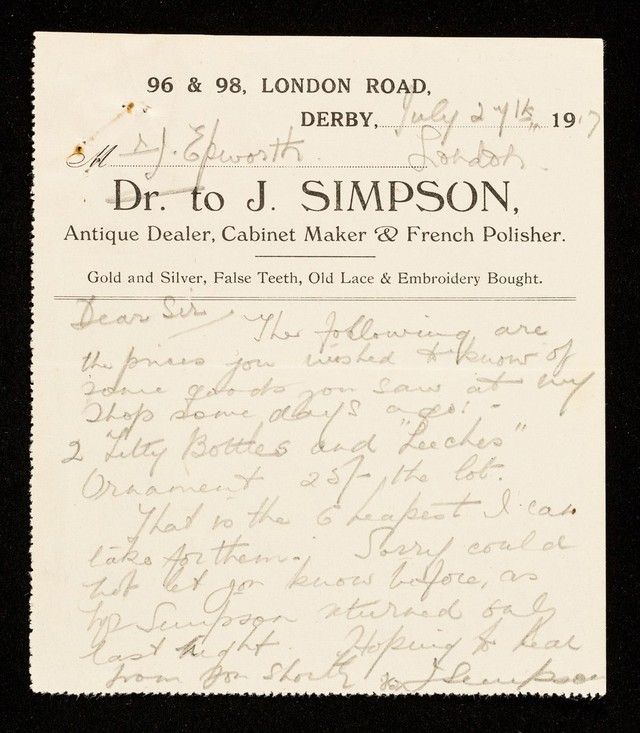 96 & 98, LONDON ROAD,
DERBY, July 27th 1917
Mr J. Epworth London
Dr. to J. SIMPSON,
Antique Dealer, Cabinet Maker & French Polisher.
Gold and Silver, False Teeth, Old Lace & Embroidery Bought.
Dear Sir The following are
the prices you wished to know of
some goods you saw at my
Shop some days ago: -
2 Titty Bottles and "Leeches"
Ornament 25/- the lot.
That is the Cheapest I can
take for them. Sorry could
not let you know before, as
Mr Simpson returned only
last night. Hoping to hear
from you shortly J Simpson